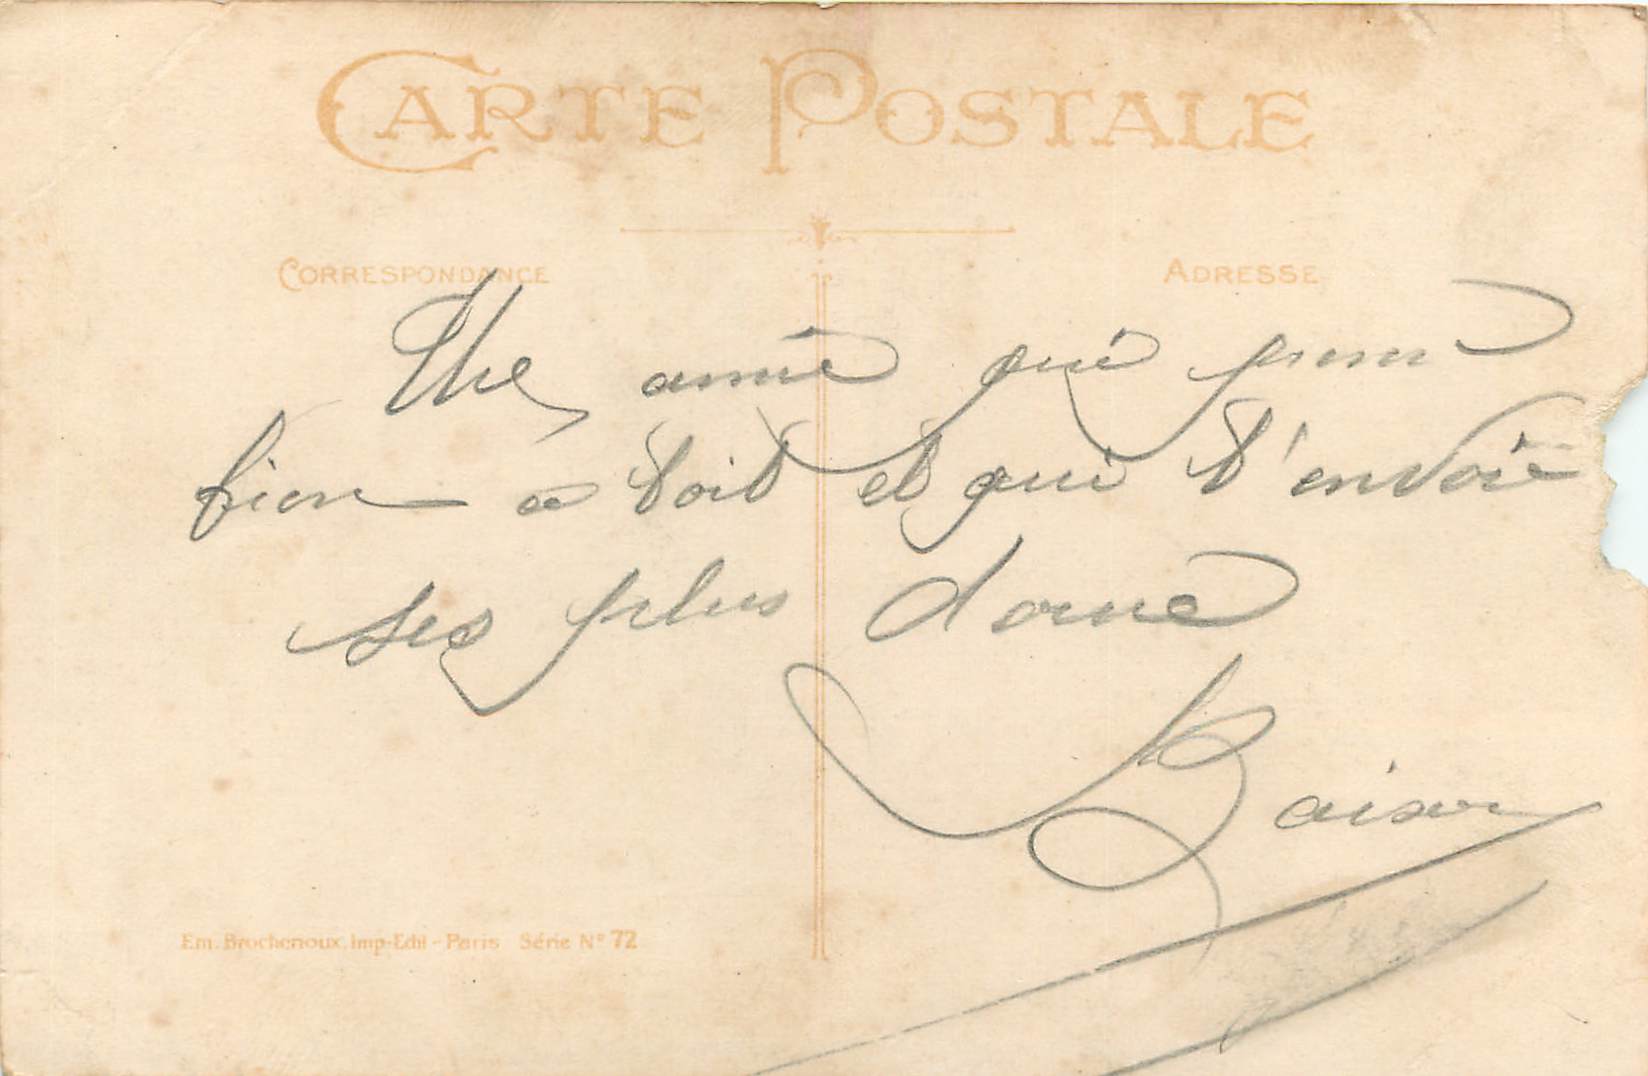 CARTE POSTALE
CORRESPONDANCE
ADRESSE
Une amie qui pense
bien a toit et qui t'envoie
ses plus doux
Baiser
Em. Brochenoux. Imp-Edit - Paris Série N° 72